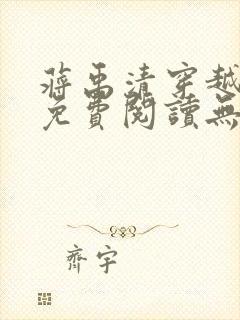 蔣禹清穿越
免費閱讀無
齊宇